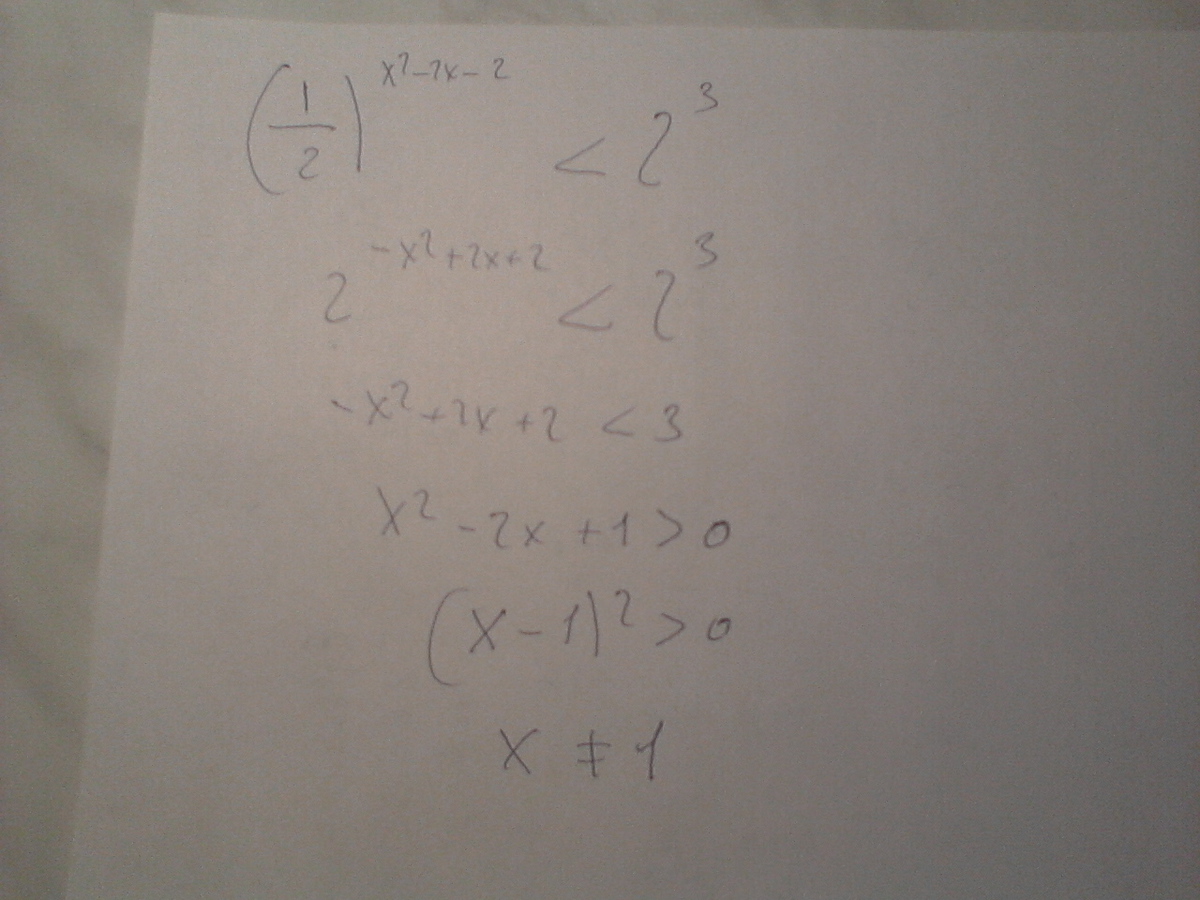 (1/2)^(x²-2x-2) < 2³
2^(-x²+2x+2) < 2³
-x²+2x+2 < 3
x²-2x+1>0
(x-1)²>0
x ≠ 1